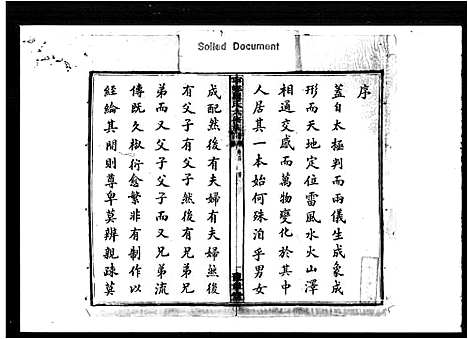 Soiled Document
序
蓋自太極判而兩儀生成象成
形而天地定位雷風水火山澤
相通交感而萬物變化於其中
人居其一本始何殊泊乎男女
成配然後有夫婦有夫婦然後
有父子有父子然後有兄弟兄
弟而又父子父子而又兄弟流
傳既久椒衍愈繁非有制作以
經綸其間則尊卑莫辨親疎莫